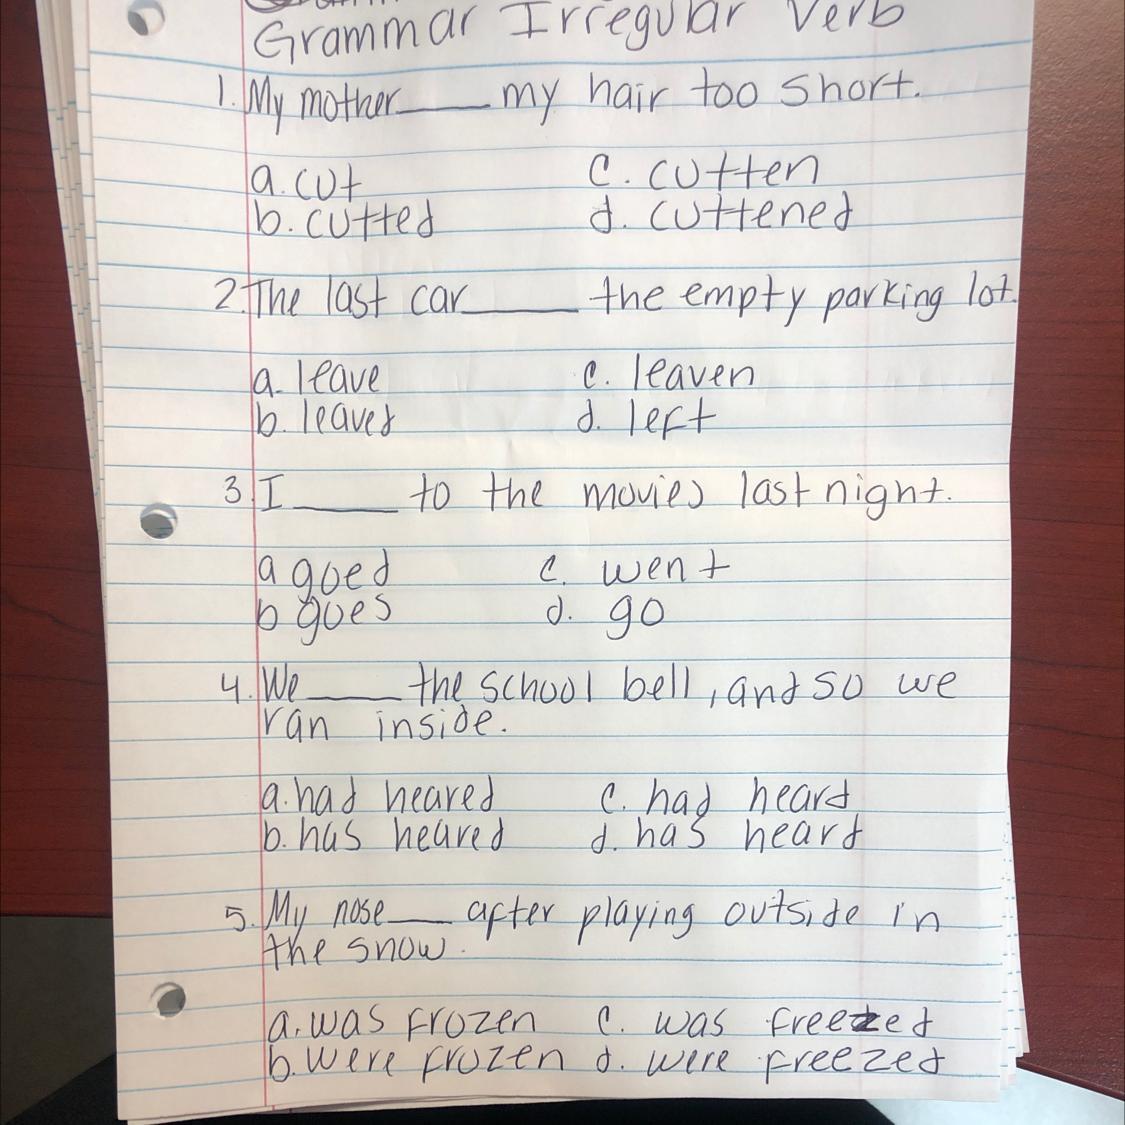 Grammar Irregular Verb
1. My mother____ my hair too short.
a. cut c. cutten
b. cutted d. cuttened
2. The last car____ the empty parking lot.
a. leave c. leaven
b. leaved d. left
3. I____ to the movies last night.
a goed c. went
b goes d. go
4. We____ the school bell, and so we
ran inside.
a. had heared c. had heard
b. has heared d. has heard
5. My nose____ after playing outside in
the snow.
a. was frozen c. was freezed
b. were frozen d. were freezed